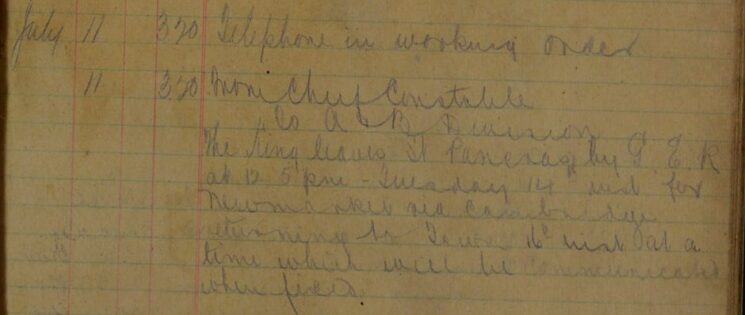 July 11 3.20 Telephone in working order
11 3.20 From Chief Constable
To A & B Division
The King leaves St Pancras by G. E. R
at 12.5 pm - Tuesday 14th inst for
Newmarket via Cambridge
returning to Town 16th inst at a
time which will be communicated
when fixed.